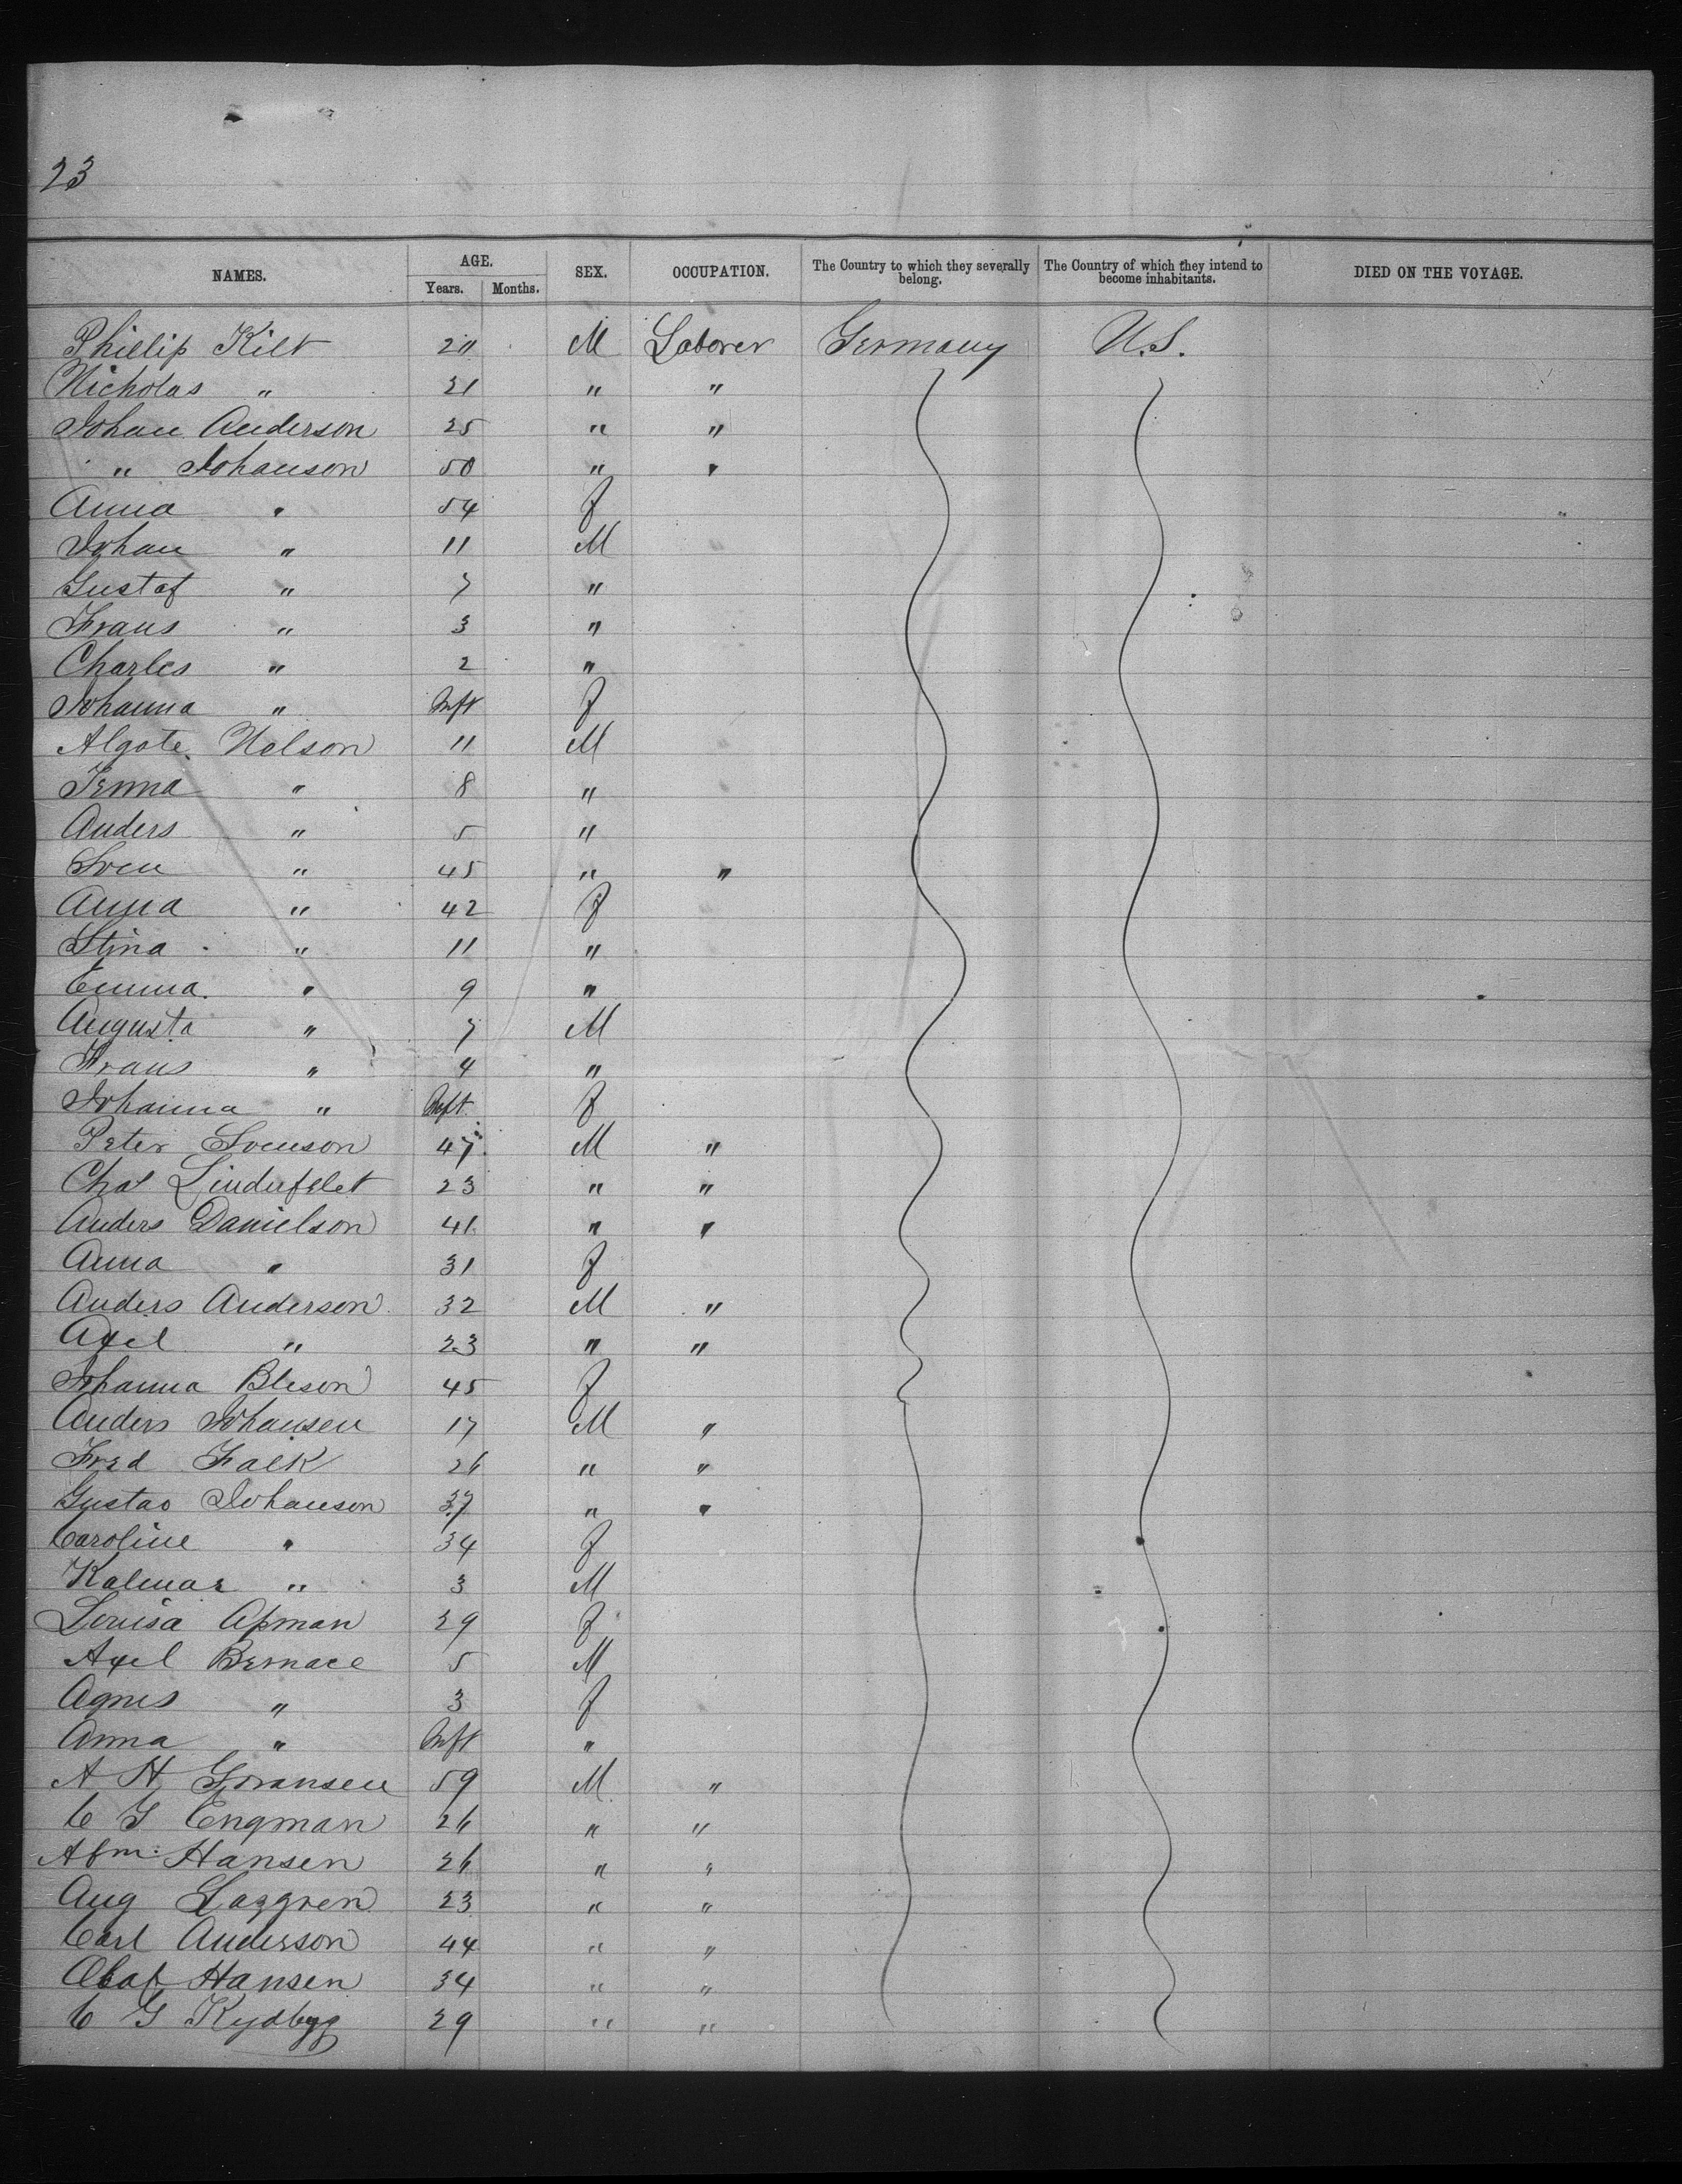 23
NAMES. AGE. Years. Months. SEX. OCCUPATION. The Country to which they severally belong. The Country of which they intend to become inhabitants. DIED ON THE VOYAGE.
Phillip Kilt 20 M Laborer Germany U.S.
Nicholas " 21 " "
Johan Anderson 25 " "
" Johanson 50 " "
Anna " 54 f
Johan " 11 M
Gustaf " 7 "
Frans " 3 "
Charles " 2 "
Johanna " Inft f
Algote Nelson 11 M
Jenna " 8 "
Anders " 5 "
Sven " 45 " "
Anna " 42 f
Stina " 11 "
Emma " 9 "
Augusta " 7 M
Frans " 4 "
Johanna " Inft f
Peter Svenson 47 M "
Chas 23 " "
Anders Danielson 41 " "
Anna " 31 f
Anders Anderson 32 M "
Axel " 23 " "
Johanna Bleson 45 f
Anders Johansen 17 M "
Fred Falk 26 " "
Gustav Johanson 37 " "
Caroline " 34 f
Kalmar " 3 M
Louisa Apman 29 f
Axel Bernace 5 M
Agnes " 3 f
Anna " Inft "
A H Goransen 59 M "
C G Engman 26 " "
Abm Hansen 26 " "
Aug 23 " "
Carl Anderson 44 " "
Olaf Hansen 34 " "
C G 29 " "